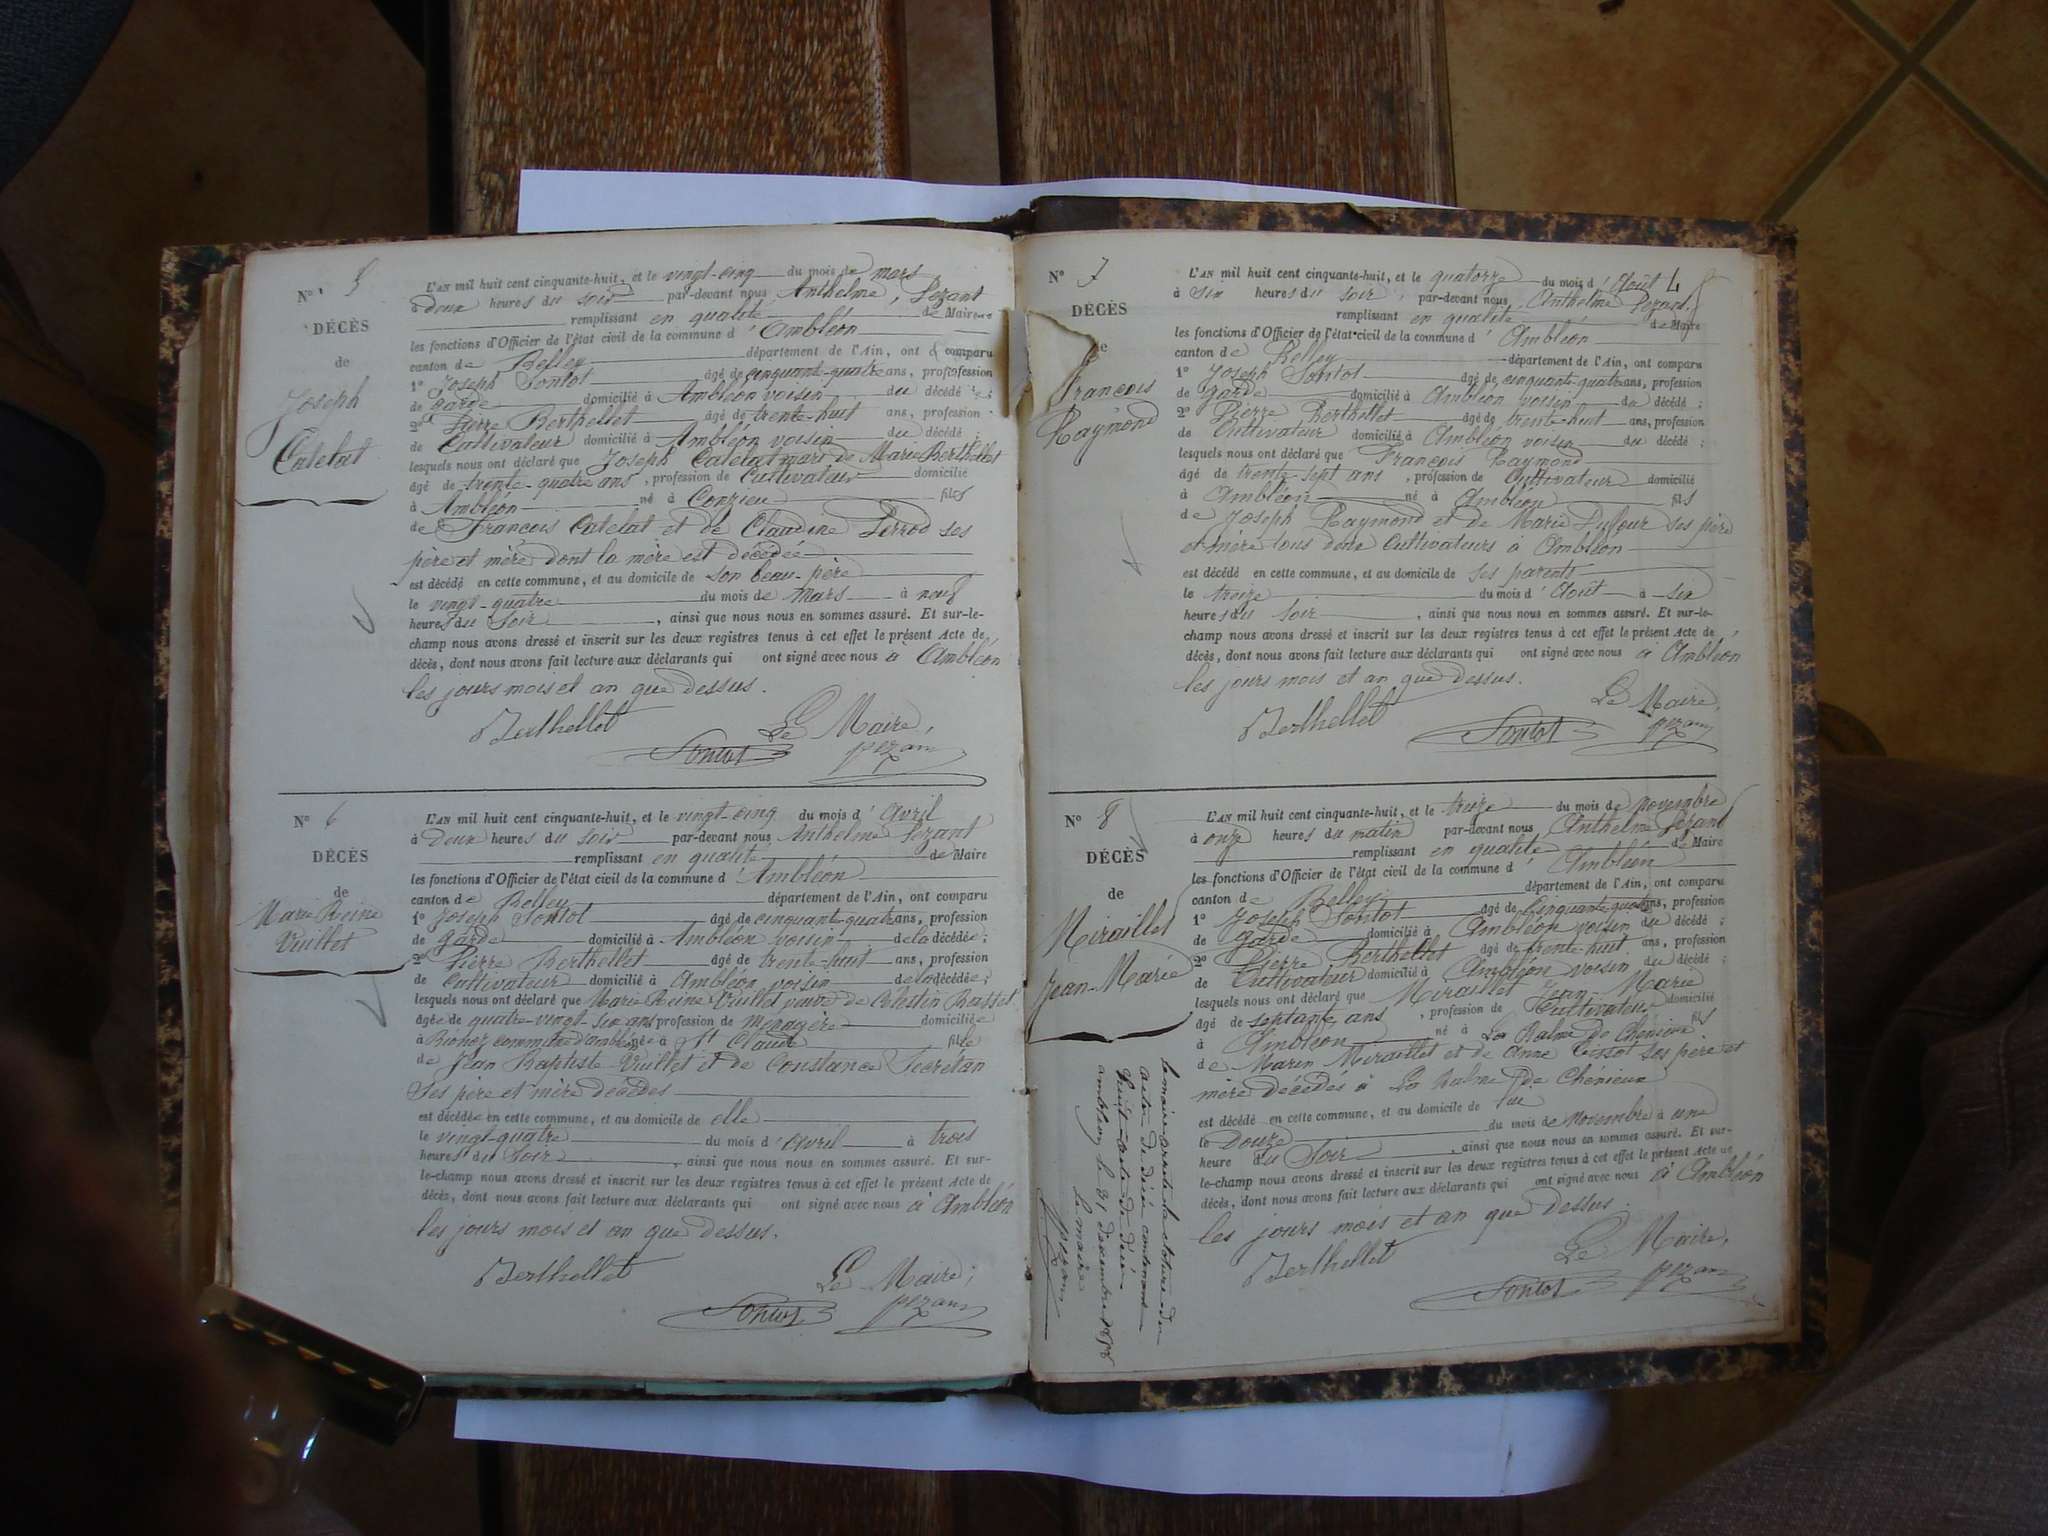 N° 5
DÉCÈS
de
Joseph
Catelat
L'AN mil huit cent cinquante-huit, et le vingt-cinq du mois de mars
à Deux heures du soir par-devant nous Anthelme Pezant
remplissant en qualité de Maire
les fonctions d'Officier de l'état civil de la commune d'Ambléon
canton de Belley département de l'Ain, ont comparu
1° Joseph Sontot âgé de cinquant-quatre ans, profession
de garde domicilié à Ambléon voisin du décédé ;
2° Pierre Berthellet âgé de trente-huit ans, profession
de Cultivateur domicilié à Ambléon voisin du décédé ;
lesquels nous ont déclaré que Joseph Catelat mari de Marie Berthellet
âgé de trente-quatre ans, profession de Cultivateur domicilié
à Ambléon né à Conzieu fils
de François Catelat et de Claudine Perrod ses
père et mère dont la mère est décédée
est décédé en cette commune, et au domicile de son beau-père
le vingt-quatre du mois de mars à neuf
heures du soir, ainsi que nous nous en sommes assuré. Et sur-le-
champ nous avons dressé et inscrit sur les deux registres tenus à cet effet le présent Acte de
décès, dont nous avons fait lecture aux déclarants qui ont signé avec nous à Ambléon
les jours mois et an que dessus.
Berthellet Le Maire,
Sontot pezant
N° 6
DÉCÈS
de
Marie Reine
Vuillet
L'AN mil huit cent cinquante-huit, et le vingt-cinq du mois d'Avril
à Deux heures du soir par-devant nous Anthelme Pezant
remplissant en qualité de Maire
les fonctions d'Officier de l'état civil de la commune d'Ambléon
canton de Belley département de l'Ain, ont comparu
1° Joseph Sontot âgé de cinquant-quatre ans, profession
de garde domicilié à Ambléon voisin de la décédée ;
2° Pierre Berthellet âgé de trente-huit ans, profession
de Cultivateur domicilié à Ambléon voisin de la décédée ;
lesquels nous ont déclaré que Marie Reine Vuillet veuve de Célestin
âgée de quatre-vingt-six ans profession de Ménagère domiciliée
à commune d'Ambléon née à St Claude fille
de Jean Baptiste Vuillet et de Constance Secretan
Ses père et mère décédés
est décédée en cette commune, et au domicile de elle
le vingt-quatre du mois d'Avril à trois
heures du soir, ainsi que nous nous en sommes assuré. Et sur-
le-champ nous avons dressé et inscrit sur les deux registres tenus à cet effet le présent Acte de
décès, dont nous avons fait lecture aux déclarants qui ont signé avec nous à Ambléon
les jours mois et an que dessus.
Berthellet Le Maire,
Sontot pezant
N° 7
DÉCÈS
de
François
Raymond
L'AN mil huit cent cinquante-huit, et le quatorze du mois d'Août 4
à six heures du soir, par-devant nous Anthelme Pezant
remplissant en qualité de Maire
les fonctions d'Officier de l'état civil de la commune d'Ambléon
canton de Belley département de l'Ain, ont comparu
1° Joseph Sontot âgé de cinquante-quatre ans, profession
de garde domicilié à Ambléon voisin du décédé ;
2° Pierre Berthellet âgé de trente-huit ans, profession
de Cultivateur domicilié à Ambléon voisin du décédé ;
lesquels nous ont déclaré que François Raymond
âgé de trente-sept ans, profession de Cultivateur domicilié
à Ambléon né à Ambléon fils
de Joseph Raymond et de Marie Dufour ses père
et mère tous deux Cultivateurs à Ambléon
est décédé en cette commune, et au domicile de ses parents
le treize du mois d'Août à six
heures du soir, ainsi que nous nous en sommes assuré. Et sur-le-
champ nous avons dressé et inscrit sur les deux registres tenus à cet effet le présent Acte de
décès, dont nous avons fait lecture aux déclarants qui ont signé avec nous à Ambléon
les jours mois et an que dessus.
Berthellet Le Maire,
Sontot pezant
N° 8
DÉCÈS
de
Miraillet
Jean-Marie
L'AN mil huit cent cinquante-huit, et le treize du mois de Novembre
à onze heures du matin par-devant nous Anthelme Pezant
remplissant en qualité de Maire
les fonctions d'Officier de l'état civil de la commune d'Ambléon
canton de Belley département de l'Ain, ont comparu
1° Joseph Sontot âgé de Cinquante-quatre ans, profession
de garde domicilié à Ambléon voisin du décédé ;
2° Pierre Berthellet âgé de trente-huit ans, profession
de Cultivateur domicilié à Ambléon voisin du décédé ;
lesquels nous ont déclaré que Miraillet Jean-Marie
âgé de septante ans, profession de Cultivateur domicilié
à Ambléon né à La Balme de Chénieu fils
de Marin Miraillet et de Anne Tissot ses père et
mère décédés à La Balme de Chénieux
est décédé en cette commune, et au domicile de lui
le Douze du mois de Novembre à une
heure du Soir, ainsi que nous nous en sommes assuré. Et sur-
le-champ nous avons dressé et inscrit sur les deux registres tenus à cet effet le présent Acte de
décès, dont nous avons fait lecture aux déclarants qui ont signé avec nous à Ambléon
les jours mois et an que dessus.
Berthellet Le Maire,
Sontot pezant
le maire la cloture du
actes de décès contenant
huit actes de décès
ambléon le 31 décembre 1858
Le maire
pezant